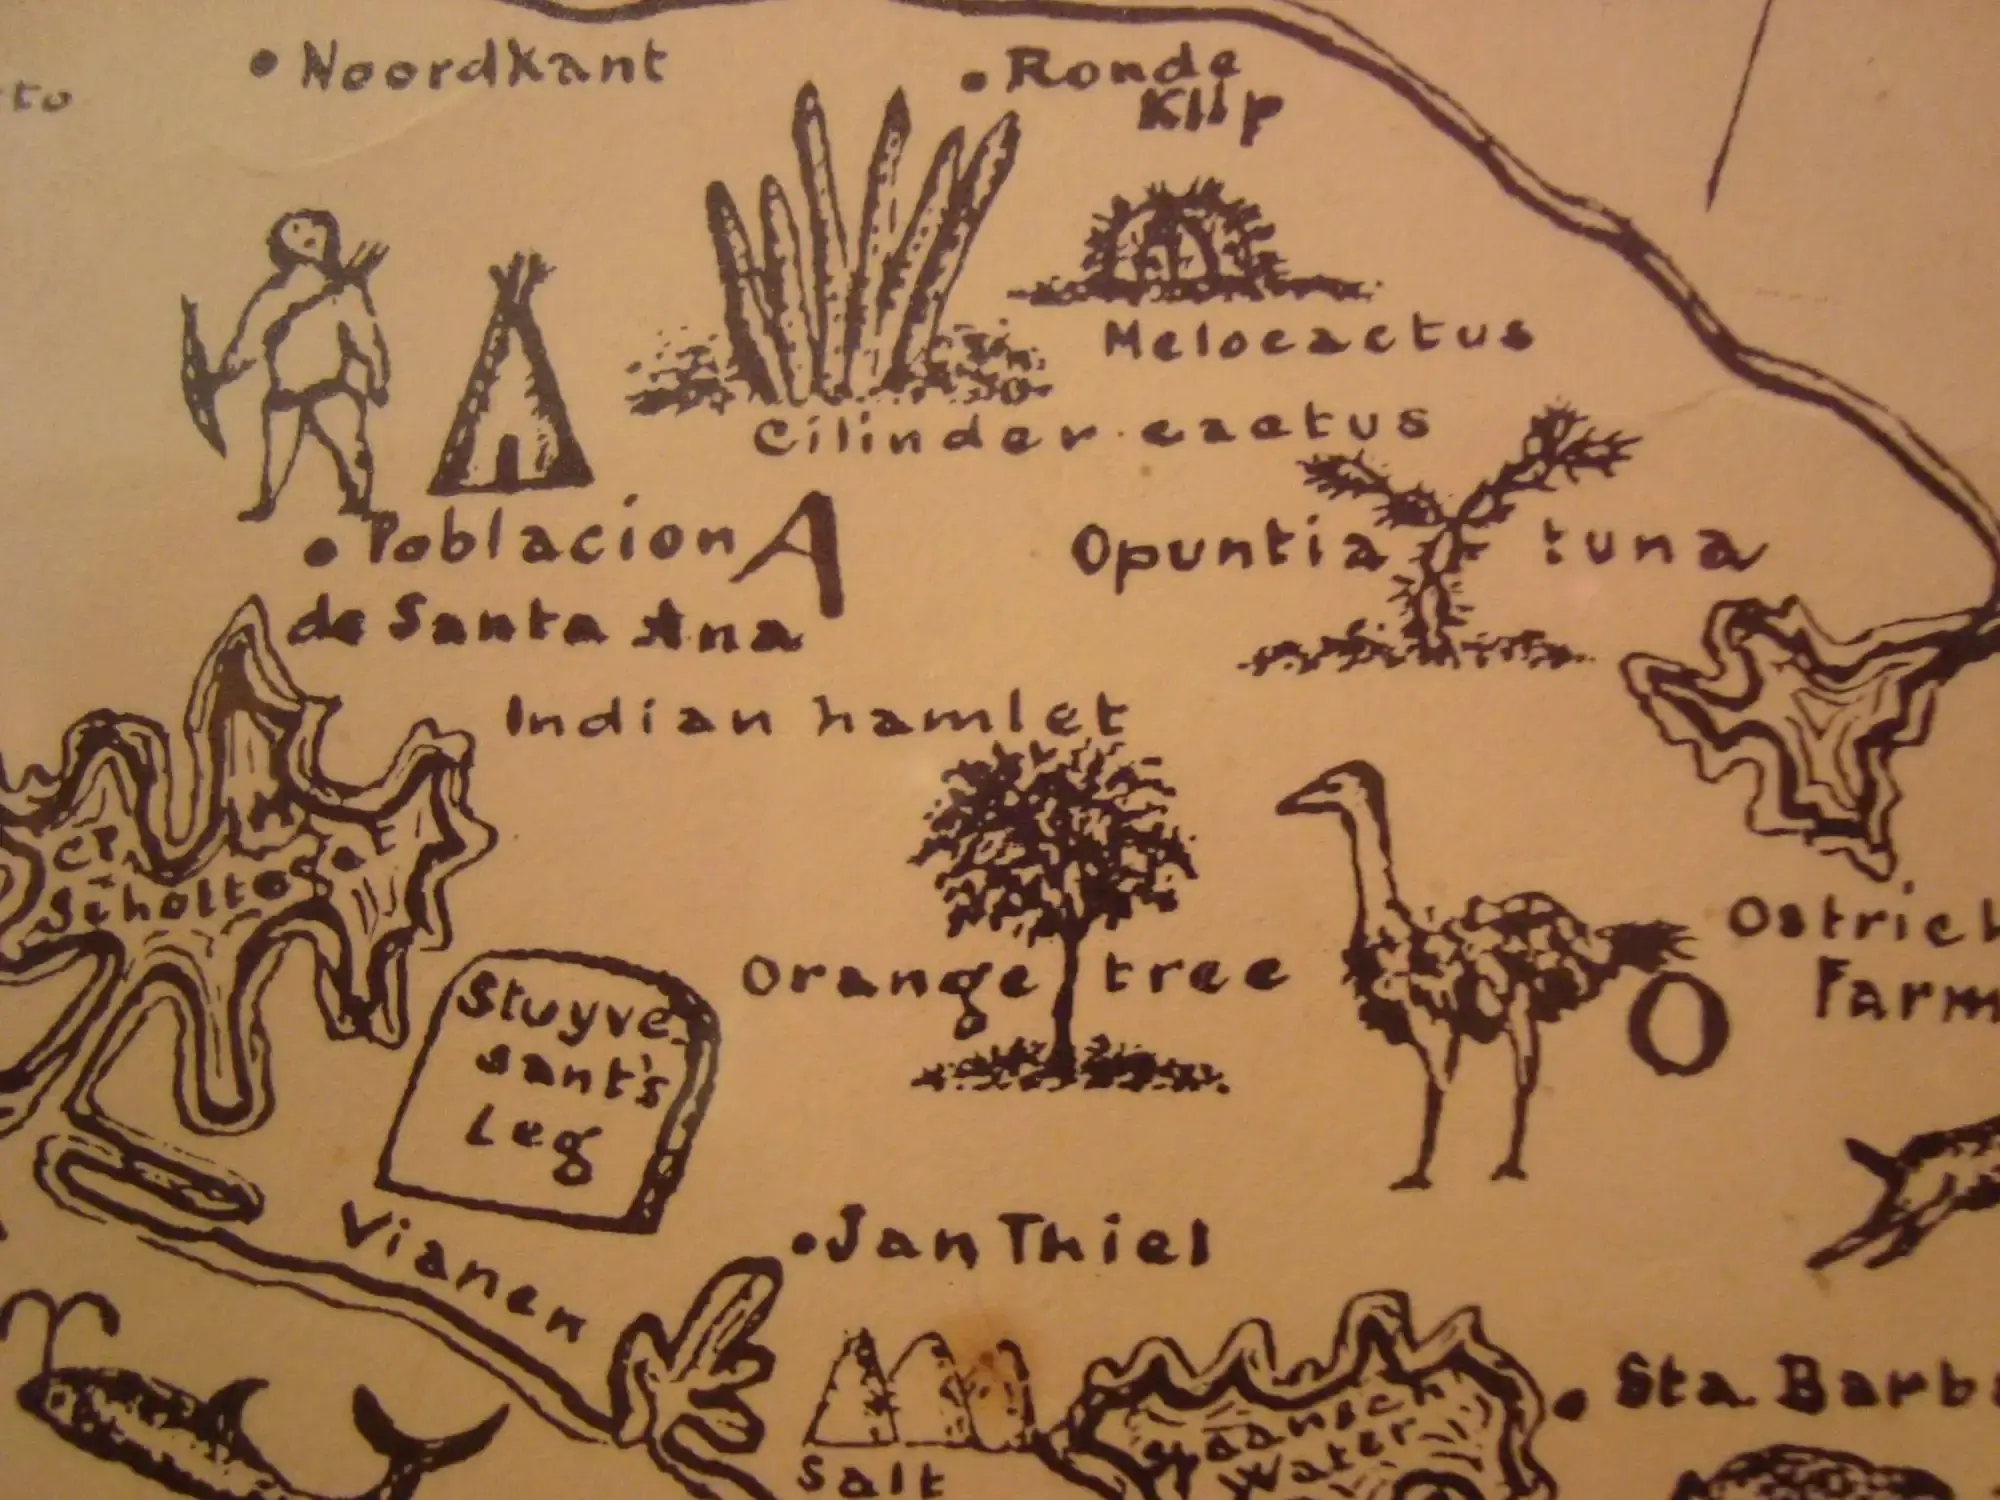 Noordkant
Ronde
Klip
Melocactus
Cilinder cactus
Poblacion
de Santa Ana
A
Opuntia tuna
Indian hamlet
Schottegat
Orange tree
Ostrich
Farm
O
Stuyve
sant's
Leg
Vianen
Jan Thiel
Salt
Spaansch
Water
Sta Barba